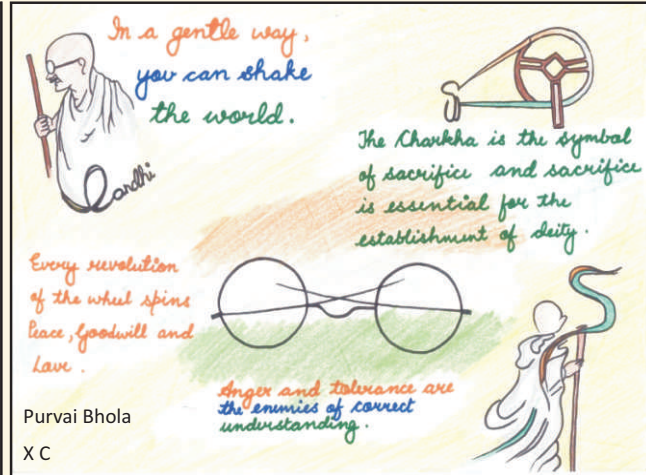 In a gentle way,
you can shake
the world.
Gandhi
The Charkha is the symbol
of sacrifice and sacrifice
is essential for the
establishment of deity.
Every revolution
of the wheel spins
Peace, Goodwill and
Love.
Anger and tolerance are
the enemies of correct
understanding.
Purvai Bhola
X C